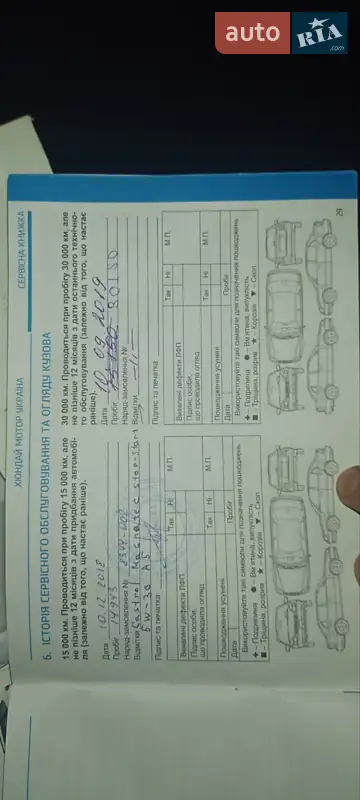 auto RIA.com
ХЮНДАЙ МОТОР УКРАЇНА
СЕРВІСНА КНИЖКА
5. ІСТОРІЯ СЕРВІСНОГО ОБСЛУГОВУВАННЯ ТА ОГЛЯДУ КУЗОВА
15 000 км. Проводиться при пробігу 15 000 км, але
не пізніше 12 місяців з дати придбання автомобі-
ля (залежно від того, що настає раніше).
Дата 10.12.2018
Пробіг 14943
Наряд-замовлення №
Відмітки Castrol Magnatec Stop-Start
5W-30 A5
Підпис та печатка
Так Ні М.П.
Виявлені дефекти ЛФП
Підпис особи,
що проводила огляд
Так Ні М.П.
Пошкодження усунені
Дата Пробіг
Використовуйте такі символи для позначення пошкоджень
✚ – Подряпина ● – Вм'ятина, випуклість
■ – Тріщина, розрив ★ – Корозія ▼ – Скол
30 000 км. Проводиться при пробігу 30 000 км, але
не пізніше 12 місяців з дати останнього технічно-
го обслуговування (залежно від того, що настає
раніше).
Дата 09 2019
Пробіг 30150
Наряд-замовлення №
Відмітки
Підпис та печатка
Так Ні М.П.
Виявлені дефекти ЛФП
Підпис особи,
що проводила огляд
Так Ні М.П.
Пошкодження усунені
Дата Пробіг
Використовуйте такі символи для позначення пошкоджень
✚ – Подряпина ● – Вм'ятина, випуклість
■ – Тріщина, розрив ★ – Корозія ▼ – Скол
29